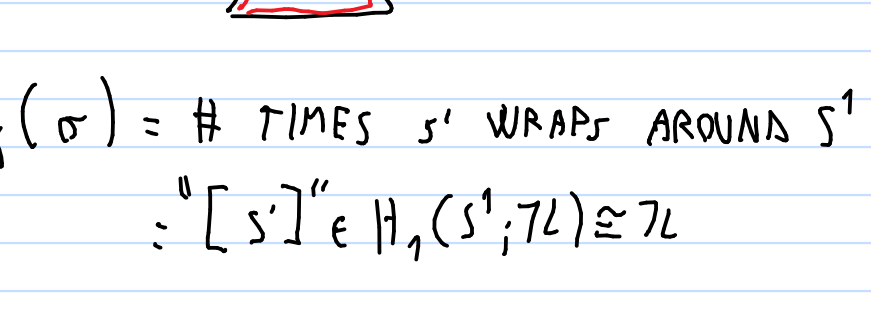 (σ) = # TIMES s' WRAPS AROUND S¹
= "[s']" ∈ H₁(S¹;ℤ) ≅ ℤ